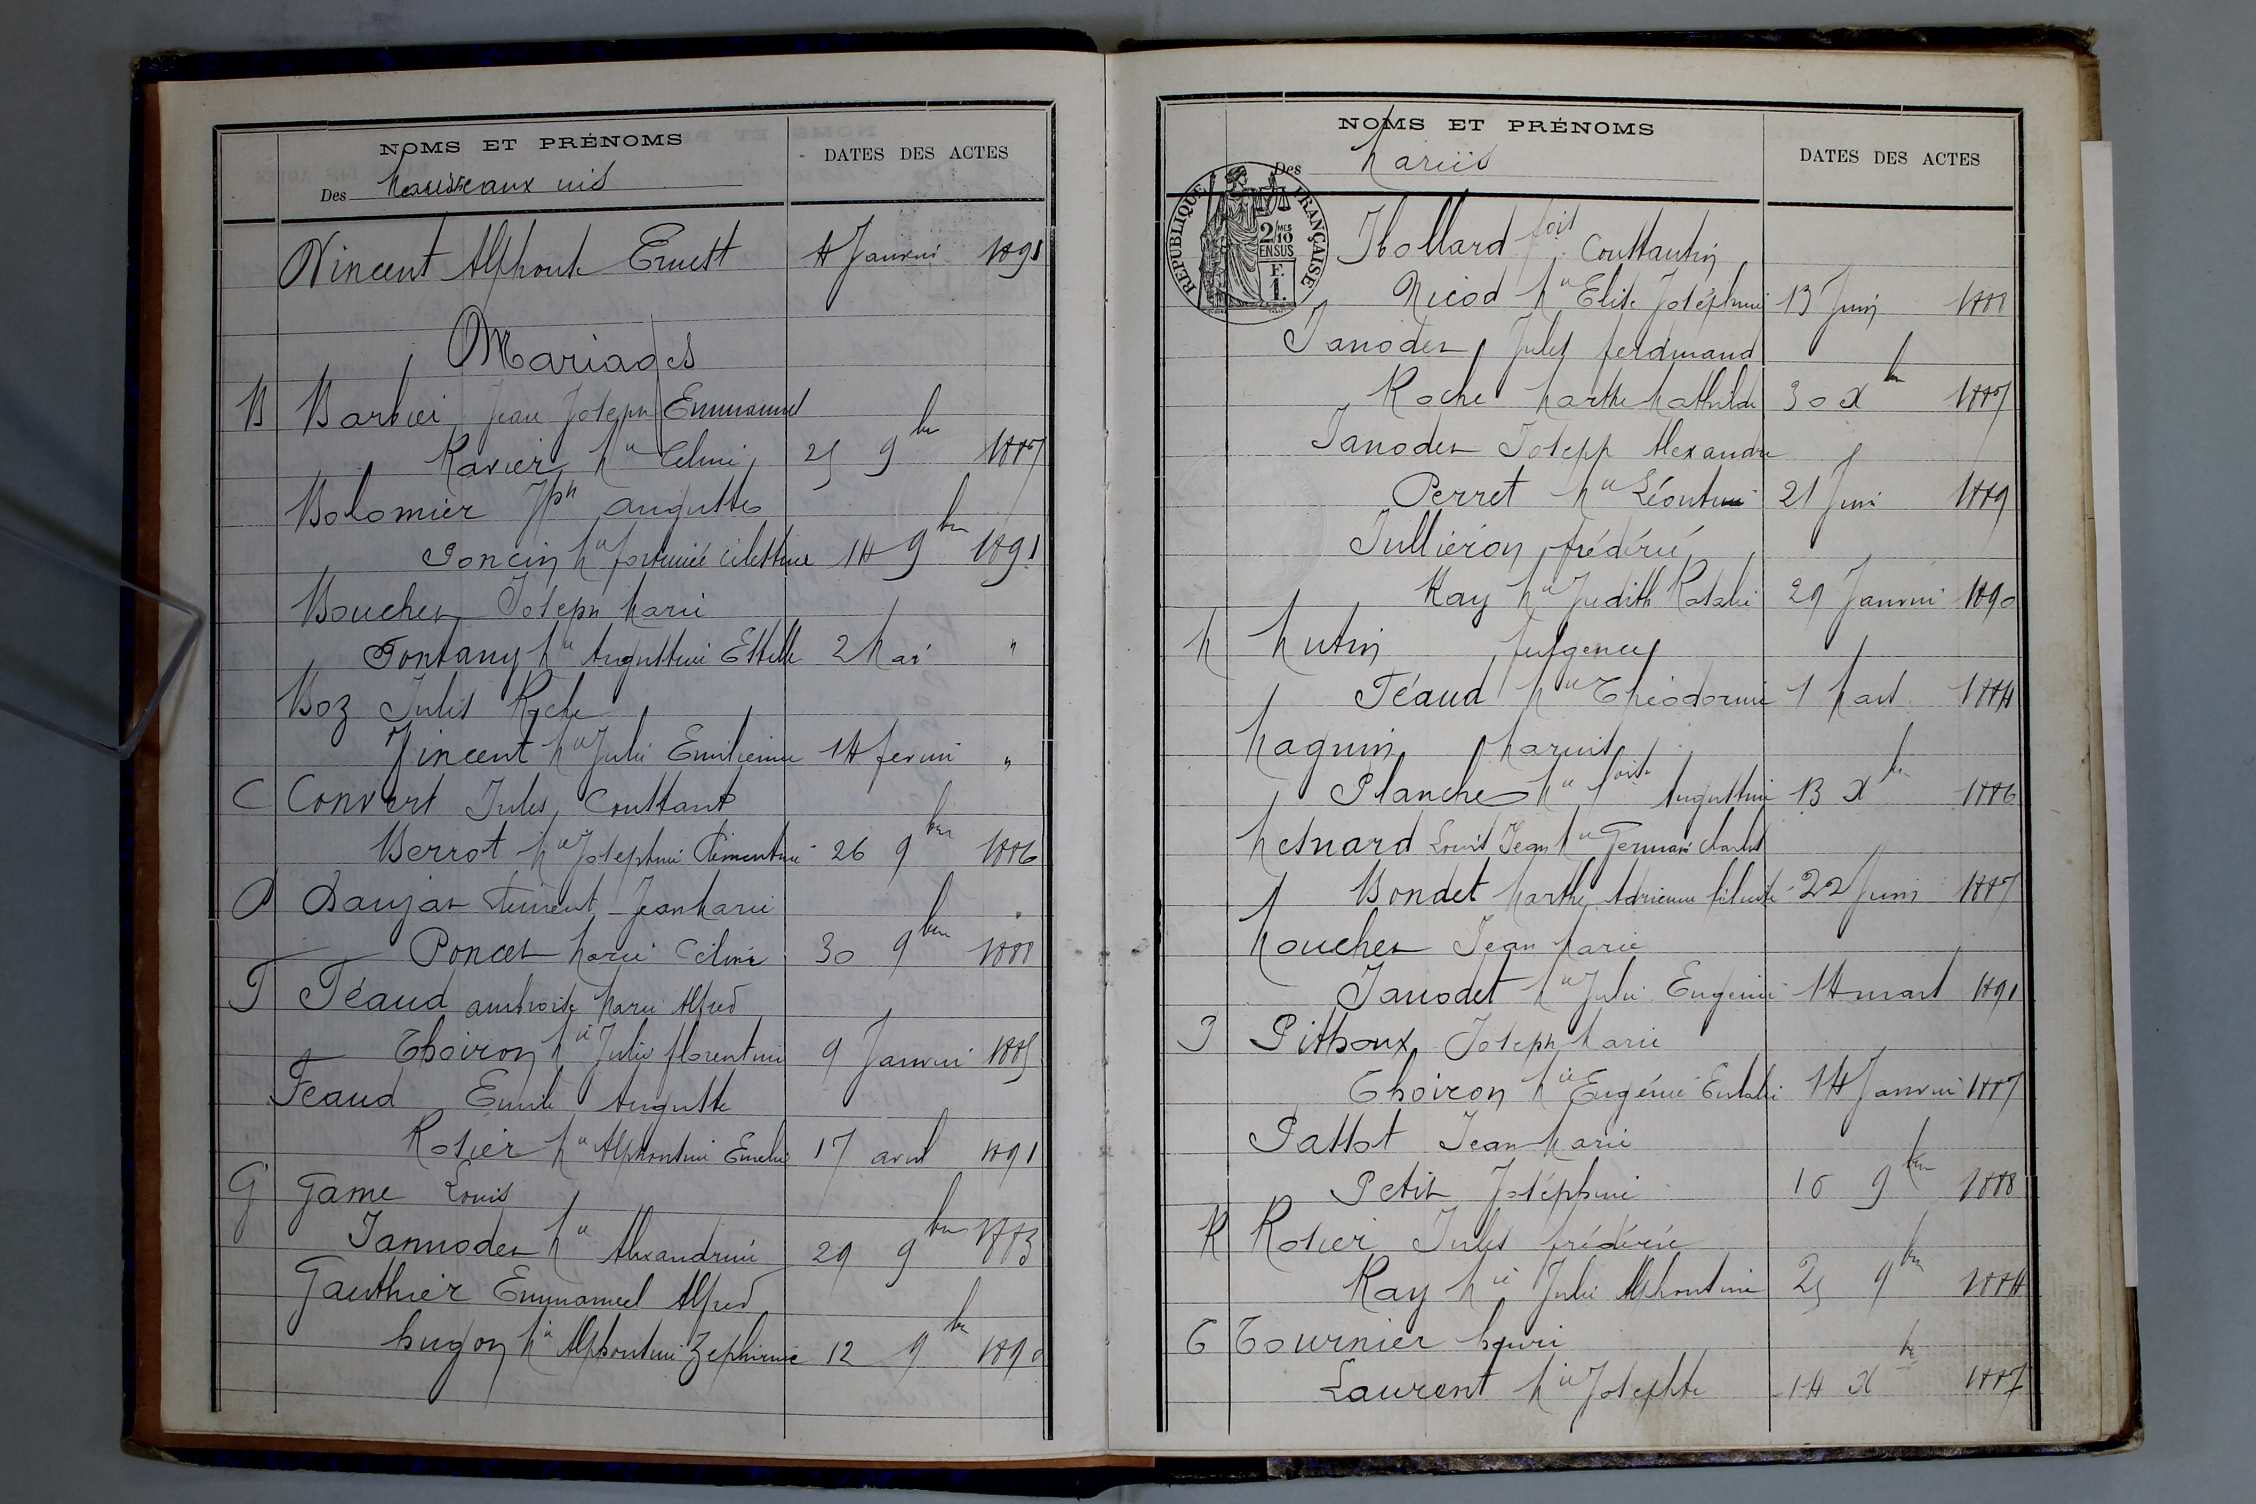 NOMS ET PRÉNOMS
DATES DES ACTES
Des Nouveaux nés
Vincent Alphonse Ernest 4 Janvier 1891
Mariages
B Barbier Jean Joseph Emmanuel
Ravier Mie Celine 25 9bre 1887
Bolomier Jph Auguste
Poncin Mie fortunée Célestine 14 9bre 1891
Bouchet Joseph Marie
Fontany Mie Augustine Estelle 2 Mai "
Boz Jules Roche
Vincent Mie Julie Emilienne 14 fevrier "
C Convert Jules Constant
Berrot Mie Josephine Clémentine 26 9bre 1886
D Daujat Clément Jean Marie
Poncet Marie Céline 30 9bre 1888
F Féaud ambroise Marie Alfred
Thoiron Mie Julie florentine 9 Janvier 1885
Feaud Emile Auguste
Rosier Mie Alphonsine Emelie 17 avril 1891
G Game Louis
Jannodet Mie Alexandrine 29 9bre 1883
Gauthier Emmanuel Alfred
hugon Mie Alphonsine Zéphirine 12 9bre 1890
NOMS ET PRÉNOMS
DATES DES ACTES
Des Mariés
REPUBLIQUE FRANÇAISE
2/10 MES
EN SUS
F.
1.
Hollard fois Constantin
Nicod Mie Elise Joséphine 13 Juin 1888
Janodet Jules ferdinand
Roche Marthe Mathilde 30 Xbre 1887
Janodet Joseph Alexandre
Perret Mie Léontine 21 Juin 1889
Jullieron frédéric
Ray Mie Judith Natalie 29 Janvier 1890
M Mutin fulgence
Féaud Mie Théodorine 1 Mars 1884
Maguin Marius
Planche Mie Augustine 13 Xbre 1886
Mesnard Louis Jean Mie Germain Charles
Bondet Marthe Adrienne 22 Juin 1887
Mouchet Jean Marie
Janodet Mie Julie Eugenie 14 mars 1891
P Pithoux Joseph Marie
Thoiron Mie Eugénie Eulalie 14 Janvier 1887
Pattot Jean Marie
Petit Joséphine 10 9bre 1888
R Rosier Jules frédéric
Ray Mie Julie Alphonsine 25 9bre 1884
T Tournier henri
Laurent Mie Josephte 14 Xbre 1887